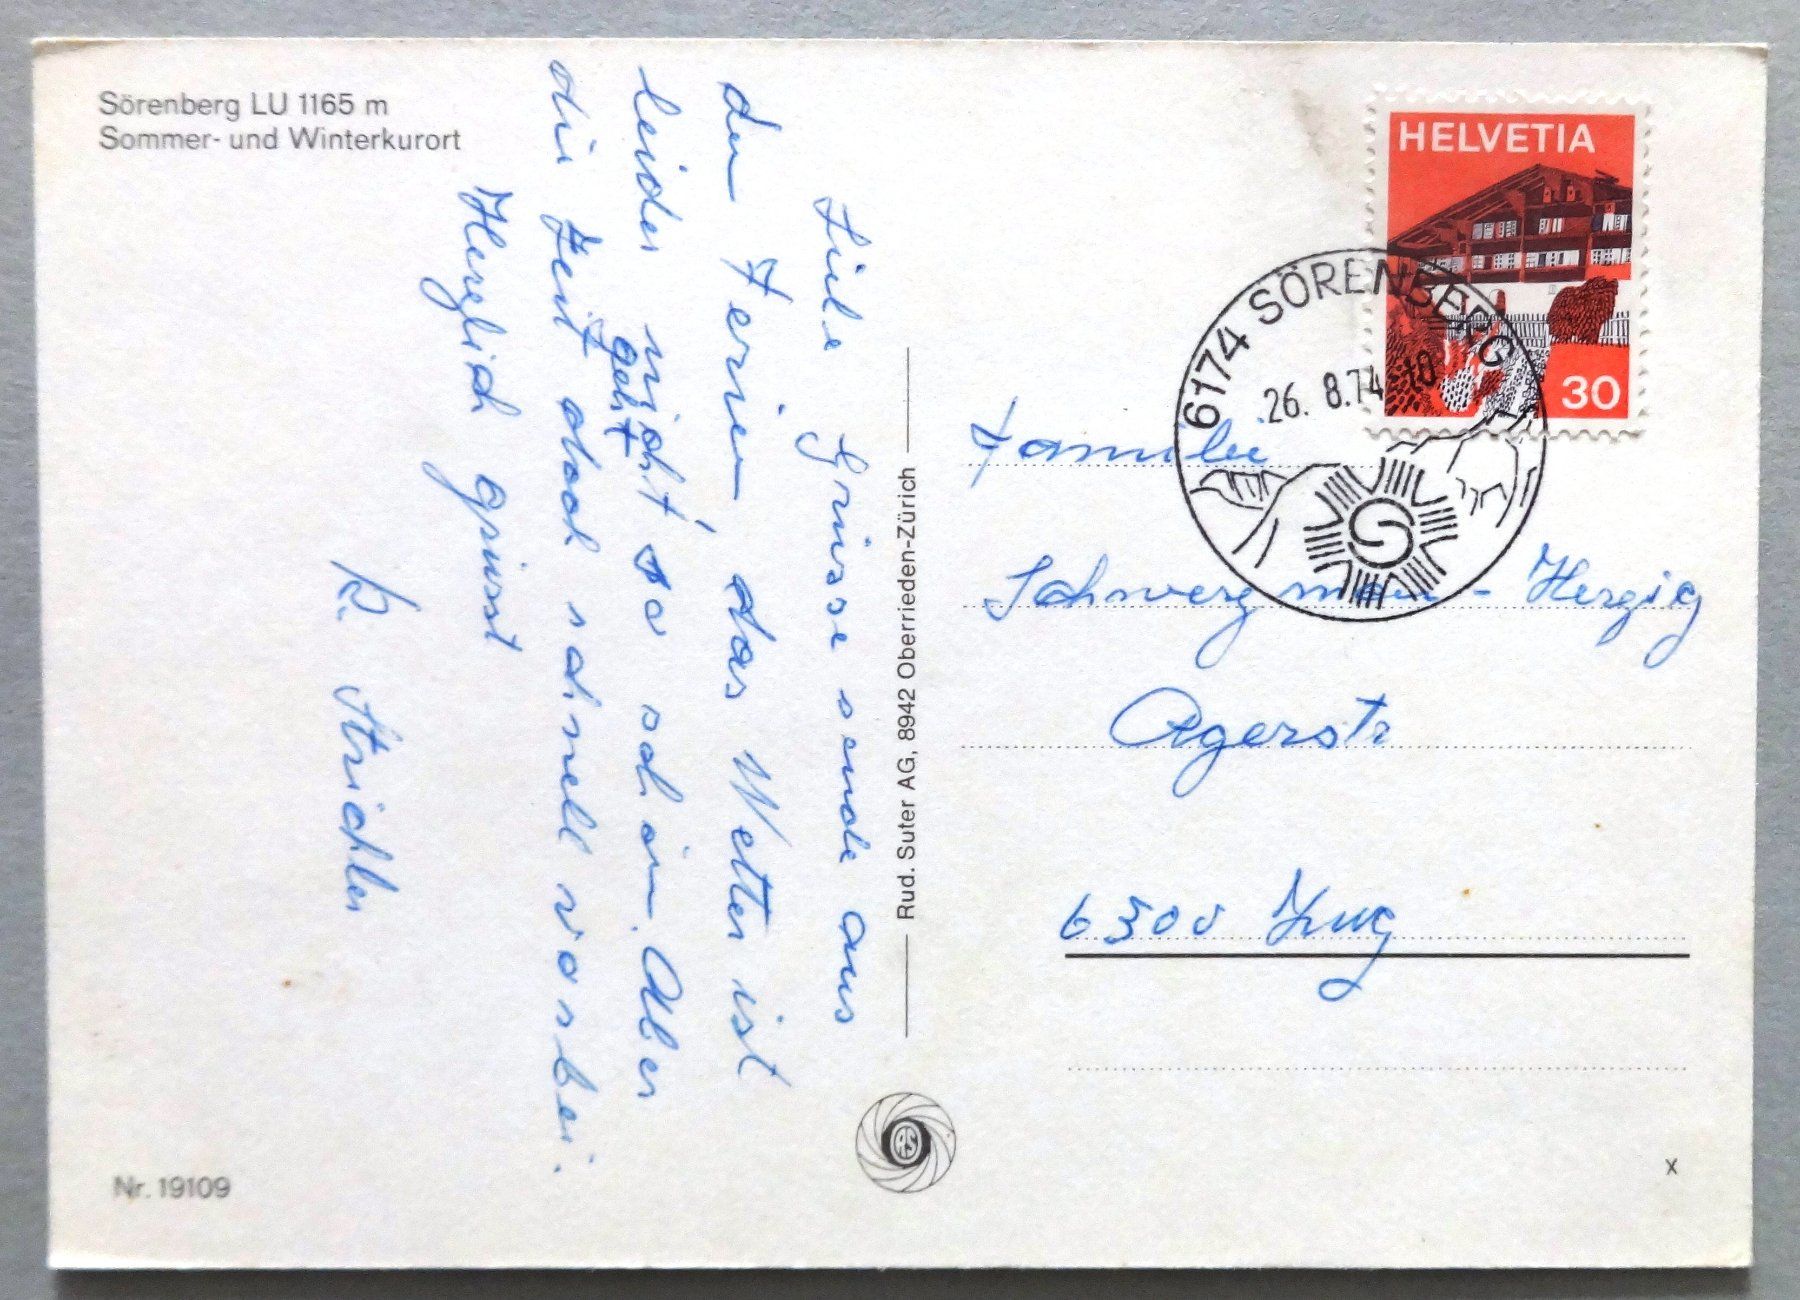 Sörenberg LU 1165 m
Sommer- und Winterkurort
Liebe Grüsse sende aus
den Ferien, das Wetter ist
leider nicht so schön. Aber
die Zeit geht doch schnell vorbei.
Herzlich grüsst
R. Strickler
Nr. 19109
Rud. Suter AG, 8942 Oberrieden-Zürich
HELVETIA
30
6174 SÖRENBERG
26. 8.74 -10
Familie
Schwerzmann - Herzig
Agerstr
6300 Zug
x